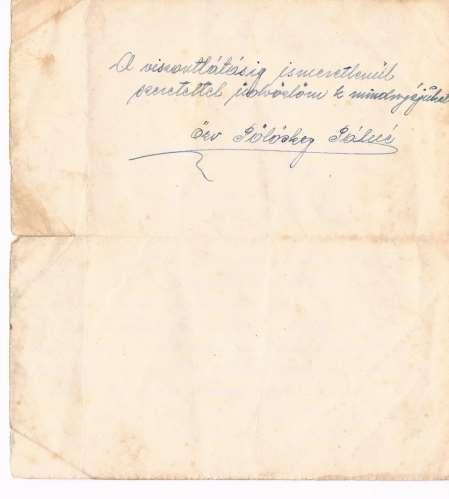 A viszontlátásig ismeretlenül
szeretettel üdvözlöm k mindnyájukat
özv Pölöskey Pálné